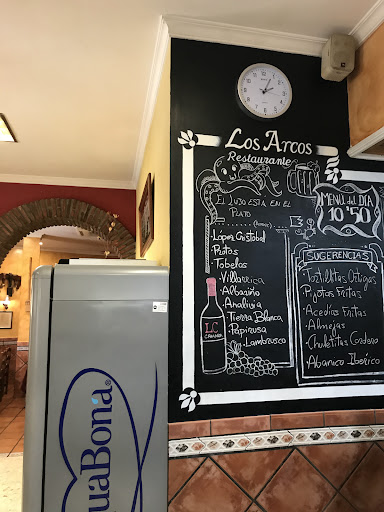 Los Arcos
Restaurante
El lujo esta en el
Plato
MENU del DIA
10'50
López Cristobal
Protos
Tobelos
Villarrica
Albariño
Analivia
Tierra Blanca
Papirusa
Lambrusco
LC
CRIANZA
SUGERENCIAS
Tortillitas Ortigas
Pijotas Fritas
Acedias Fritas
Almejas
Chuletitas Cordero
Abanico Ibérico
AquaBona®